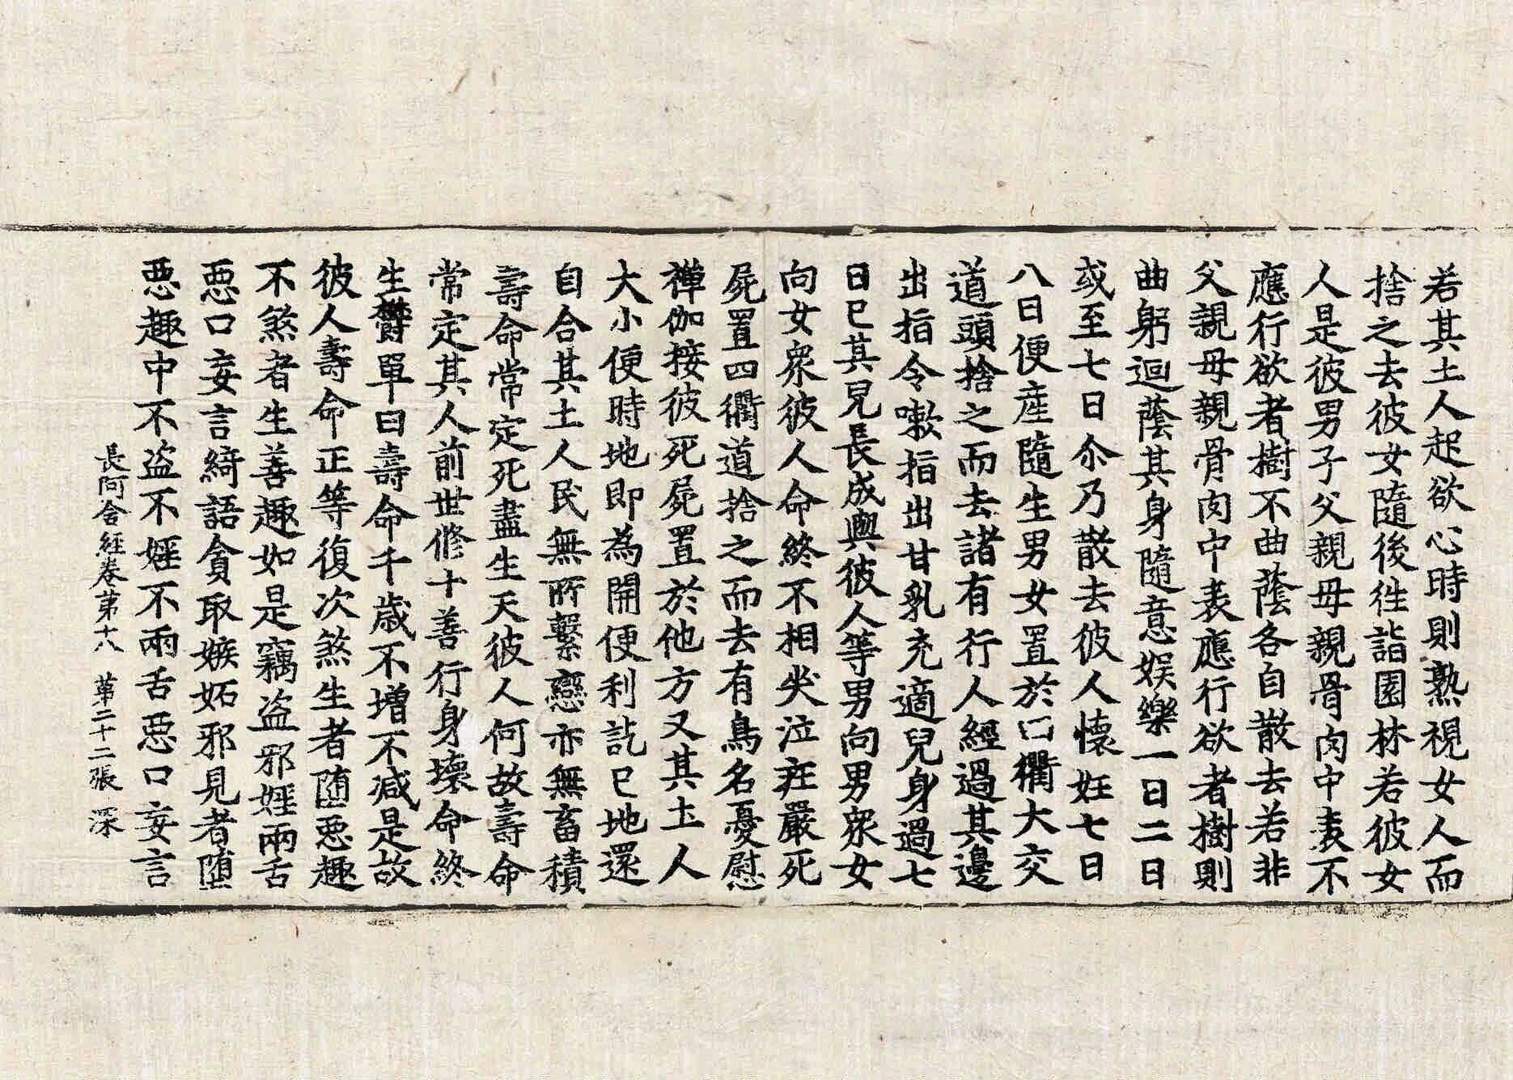 若其土人起欲心時則熟視女人而
捨之去彼女隨後往詣園林若彼女
人是彼男子父親母親骨肉中表不
應行欲者樹不曲蔭各自散去若非
父親母親骨肉中表應行欲者樹則
曲躬迴蔭其身隨意娛樂一日二日
或至七日尒乃散去彼人懷妊七日
八日便産隨生男女置於四衢大交
道頭捨之而去諸有行人經過其邊
出指令嗽指出甘乳充適兒身過七
日已其兒長成與彼人等男向男衆女
向女衆彼人命終不相哭泣莊嚴死
屍置四衢道捨之而去有鳥名憂慰
禪伽接彼死屍置於他方又其土人
大小便時地即為開便利訖已地還
自合其土人民無所繫戀亦無畜積
壽命常定死盡生天彼人何故壽命
常定其人前世修十善行身壞命終
生欝單曰壽命千歲不增不減是故
彼人壽命正等復次煞生者墮惡趣
不煞者生善趣如是竊盜邪婬兩舌
惡口妄言綺語貪取嫉妬邪見者墮
惡趣中不盜不婬不兩舌惡口妄言
長阿含經卷第十八 第二十二張 深